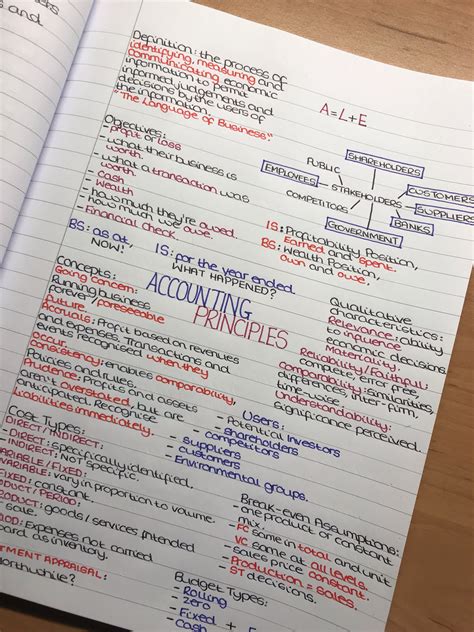 Definition: the process of
identifying, measuring and
communicating economic
information to permit
informed judgements and
decisions by the users of
the information.
"The Language of Business."
A=L+E
Ogectives:
- profit or loss
- what their business is
worth.
- what a transaction was
worth.
- Cash
- Wealth
- how much they're owed.
- how much we owe.
- Financial check.
PUBLIC
SHAREHOLDERS
EMPLOYEES
STAKEHOLDERS
CUSTOMERS
SUPPLIERS
COMPETITORS
BANKS
GOVERNMENT
IS: Profitability Position,
Earned and Spent.
BS: Wealth Position,
own and owe.
BS: as at,
NOW!
IS: for the year ended.
WHAT HAPPENED?
ACCOUNTING
PRINCIPLES
Concepts:
Going Concern:
Running business
forever/foreseeable
future
Accruals: Profit based on revenues
and expenses. Transactions and
events recognised when they
occur.
Consistency: enables comparability,
Policies and rules.
Prudence: Profits and assets
aren't overstated, but are
anticipated. Recognise
liabilities immediately.
Qualitative
characteristics:
Relevance: ability
to influence
economic decisions.
Materiality.
Reliability/Faithful:
complete, error free.
Comparability: similarities,
differences, inter-firm,
time wise
Understandability:
significance perceived.
Users:
- potential investors
- Shareholders
- competitors
- suppliers
- customers
- Environmental groups.
Cost Types:
DIRECT/INDIRECT:
- DIRECT: specifically identified.
- INDIRECT: Not specific.
VARIABLE/FIXED:
VARIABLE: vary in proportion to volume.
FIXED: constant.
PRODUCT/PERIOD:
PRODUCT: goods/services intended
for sale.
PERIOD: Expenses not carried
forward as inventory.
Break-even Assumptions:
- one product or constant
mix.
- FC same in total and unit
VC same at all levels.
- sales price constant.
- Production = sales.
- ST decisions.
Budget Types:
- Rolling
- Zero
- Fixed +
- Cash